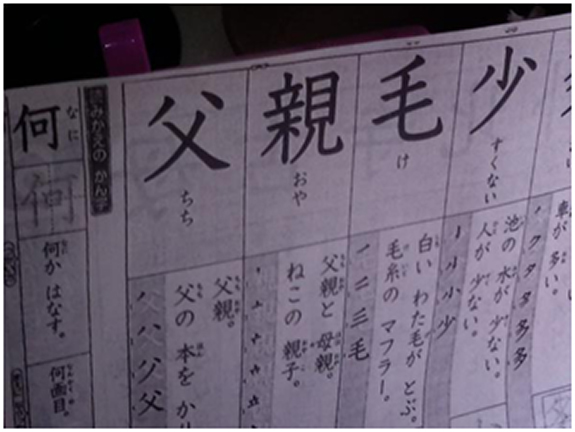 多い。
車が 多い。
少
すくない
池の 水が 少ない。
人が 少ない。
毛
け
白い わた毛が とぶ。
毛糸の マフラー。
親
おや
父親と 母親。
ねこの 親子。
父
ちち
父親。
父の 本を か
読みかえの かん字
何
なに
何か はなす。
何面目。